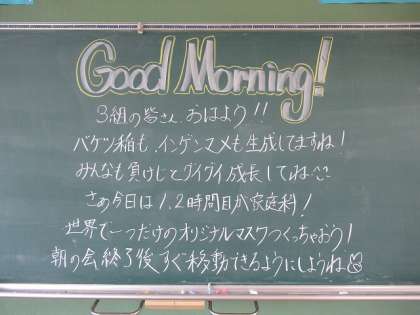 Good Morning!
3組の皆さん おはよう!!
バケツ稲も、インゲンマメも生成してますね!
みんなも負けじとグイグイ成長してね^^
さぁ今日は1.2時間目が家庭科!
世界で一つだけのオリジナルマスクつくっちゃおう!
朝の会終了後すぐ移動できるようにしようね